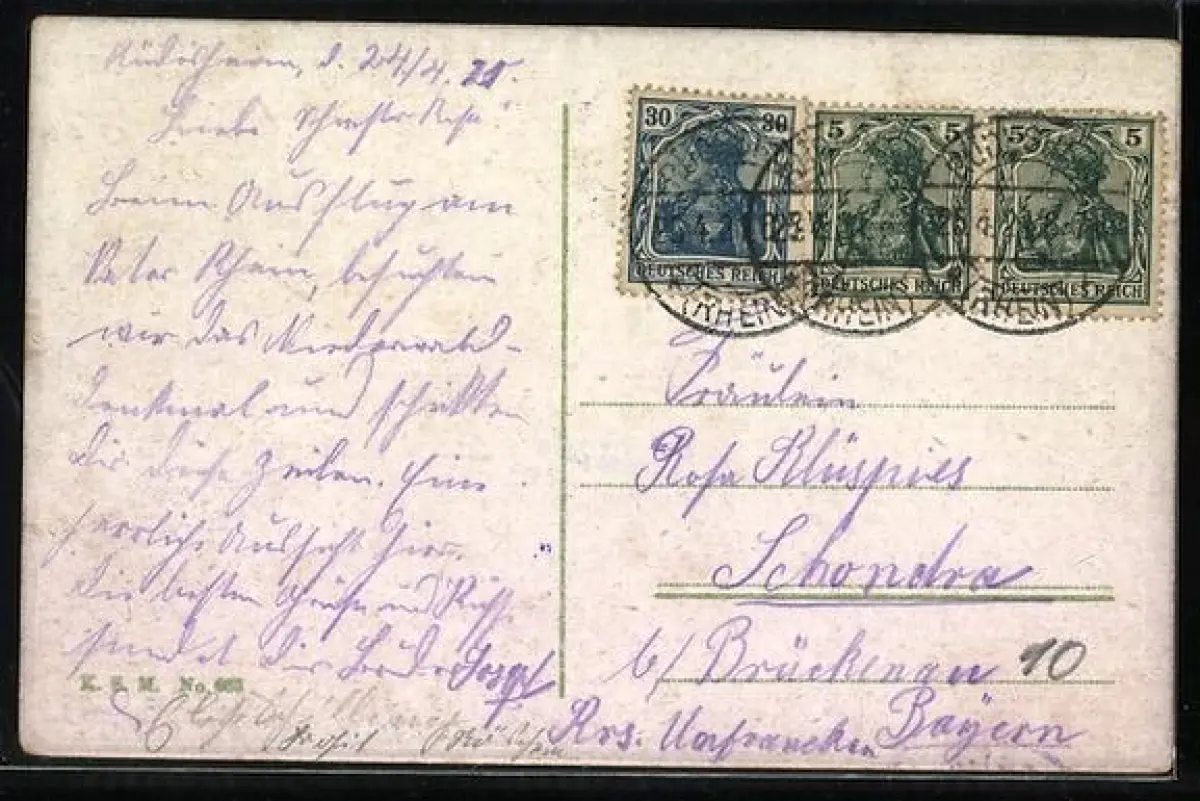 Rüdesheim, d. 24/4. 21.
Liebe Schwester Rosa!
Beim Ausflug am
Vater Rhein, besuchten
wir das Niederwald-
denkmal und schickten
Dir diese Zeilen. Eine
herrliche Aussicht hier.
Die besten Grüße und Küsse
sendet Dir Bruder Josef
K. S. M. No. 
30 30
DEUTSCHES REICH
5 5
DEUTSCHES REICH
5 5
DEUTSCHES REICH
(RHEIN)
(RHEIN)
(RHEIN)
Fräulein
Rosa Klüspies
Schondra
b/ Brückenau
10
Krs. Unfrancken Bayern